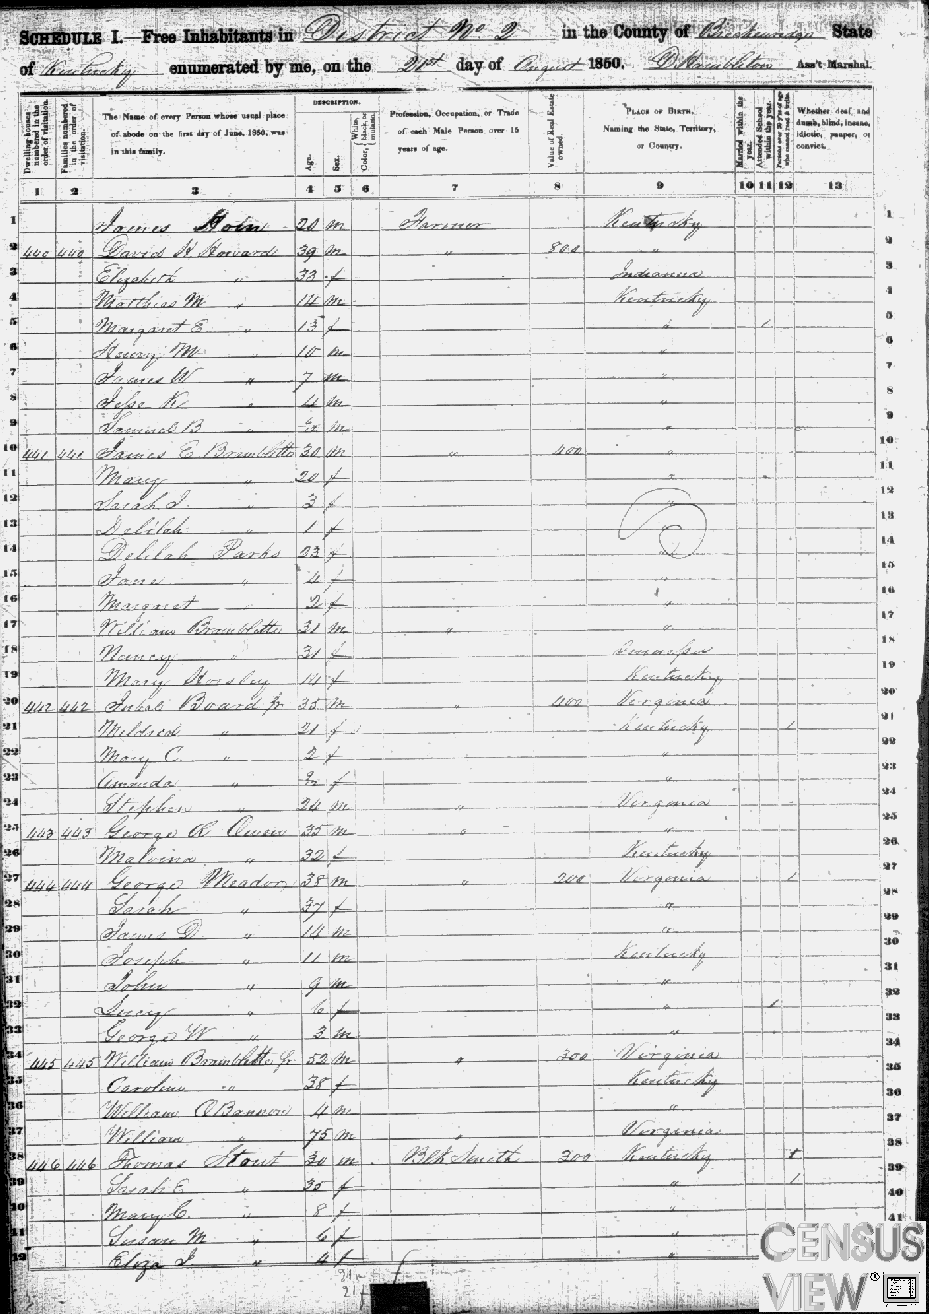 SCHEDULE I.—Free Inhabitants in District No 2 in the County of Breckenridge State
of Kentucky enumerated by me, on the 21st day of August 1850. Ass't Marshal.
Dwelling-houses numbered in the order of visitation.
Families numbered in the order of visitation.
The Name of every Person whose usual place of abode on the first day of June, 1850, was in this family.
DESCRIPTION.
Age.
Sex.
Color, White, black, or mulatto.
Profession, Occupation, or Trade of each Male Person over 15 years of age.
Value of Real Estate owned.
PLACE OF BIRTH,
Naming the State, Territory, or Country.
Married within the year.
Attended School within the year.
Persons over 20 y'rs of age who cannot read & write.
Whether deaf and dumb, blind, insane, idiotic, pauper, or convict.
1 2 3 4 5 6 7 8 9 10 11 12 13
1 James 20 m Farmer Kentucky 1
2 440 440 David H Howard 39 m " 800 "
3 Elizabeth " 33 f Indianna
4 Matthias M " 14 m Kentucky
5 Margaret E " 13 f " 1
6 Henry M " 10 m "
7 James W " 7 m "
8 Jesse K " 4 m "
9 Samuel B " m "
10 441 441 James E Bramblette 30 m " 400 "
11 Mary " 20 f "
12 Sarah J. " 3 f "
13 Delilah " 1 f "
14 Delilah Parks 23 f "
15 Jane " 4 f "
16 Margret 2 f "
17 William Bramblette 31 m " "
18 Nancy " 31 f
19 Mary Horsley 14 f Kentucky
20 442 442 Board Jr 35 m " 400 Virginia
21 Mildred " 21 f Kentucky 1
22 Mary C. " 2 f "
23 Amanda " f "
24 Stephen " 24 m " Virginia
25 443 443 George R Owen 35 m " "
26 Malvina " 32 f Kentucky
27 444 444 George Meador 38 m " 200 Virginia 1
28 Sarah " 37 f "
29 James D. " 14 m "
30 Joseph " 11 m Kentucky
31 John " 9 m "
32 Lucy " 6 f " 1
33 George W " 3 m "
34 445 445 William Bramblette Sr 52 m " 300 Virginia
35 Caroline " 38 f Kentucky
36 William OBannon 4 m "
37 William " 75 m " Virginia
38 446 446 Thomas Stout 30 m Blk Smith 200 Kentucky
39 Sarah E " 30 f " 1
40 Mary C. " 8 f "
41 Susan M " 6 f "
Eliza J " 4 f "
CENSUS
VIEW